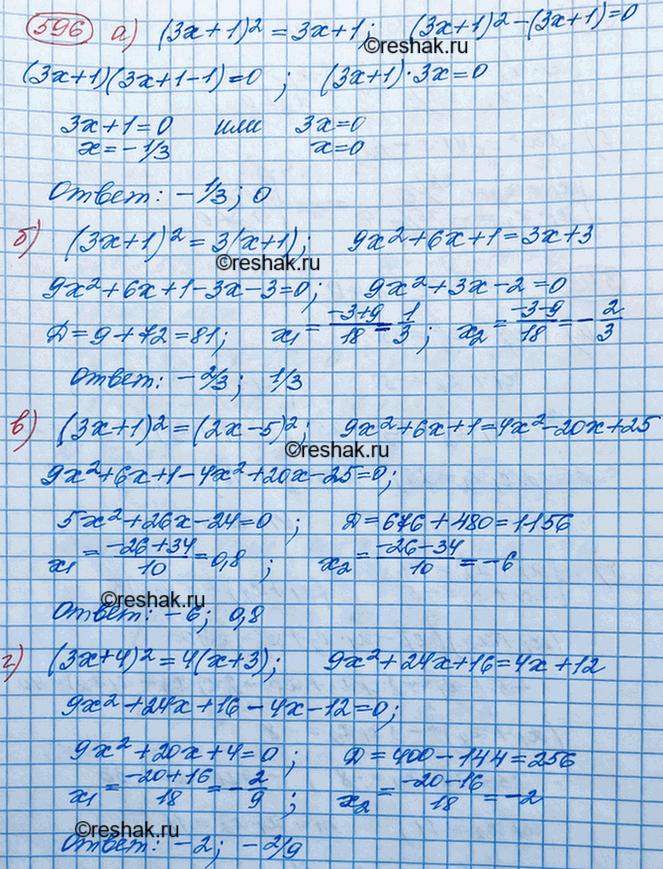 596 а) (3x+1)² = 3x+1; (3x+1)²-(3x+1)=0
©reshak.ru
(3x+1)(3x+1-1)=0; (3x+1)·3x=0
3x+1=0 или 3x=0
x=-1/3 x=0
Ответ: -1/3; 0
б) (3x+1)²=3(x+1); 9x²+6x+1=3x+3
©reshak.ru
9x²+6x+1-3x-3=0; 9x²+3x-2=0
Д=9+72=81; x₁=(-3+9)/18=1/3; x₂=(-3-9)/18=-2/3
Ответ: -2/3; 1/3
в) (3x+1)²=(2x-5)²; 9x²+6x+1=4x²-20x+25
©reshak.ru
9x²+6x+1-4x²+20x-25=0;
5x²+26x-24=0; Д=676+480=1156
x₁=(-26+34)/10=0,8; x₂=(-26-34)/10=-6
©reshak.ru
Ответ: -6; 0,8
г) (3x+4)²=4(x+3); 9x²+24x+16=4x+12
9x²+24x+16-4x-12=0;
9x²+20x+4=0; Д=400-144=256
x₁=(-20+16)/18=-2/9; x₂=(-20-16)/18=-2
©reshak.ru
Ответ: -2; -2/9